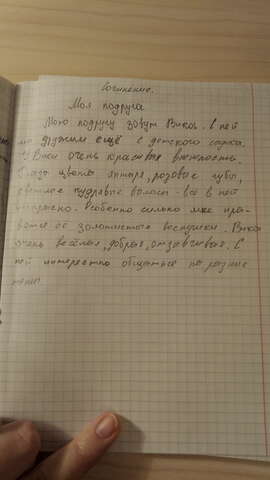 Сочинение.
Моя подруга
Мою подругу зовут Вика. С ней
мы дружим ещё с детского садика.
У Вики очень красивая внешность.
Глаза цвета янтаря, розовые губы,
светлые кудрявые волосы - всё в ней
прекрасно. Особенно сильно мне нра-
вятся её золотистые веснушки. Вика
очень весёлая, добрая, отзывчивая. С
ней интересно общаться на разные
темы